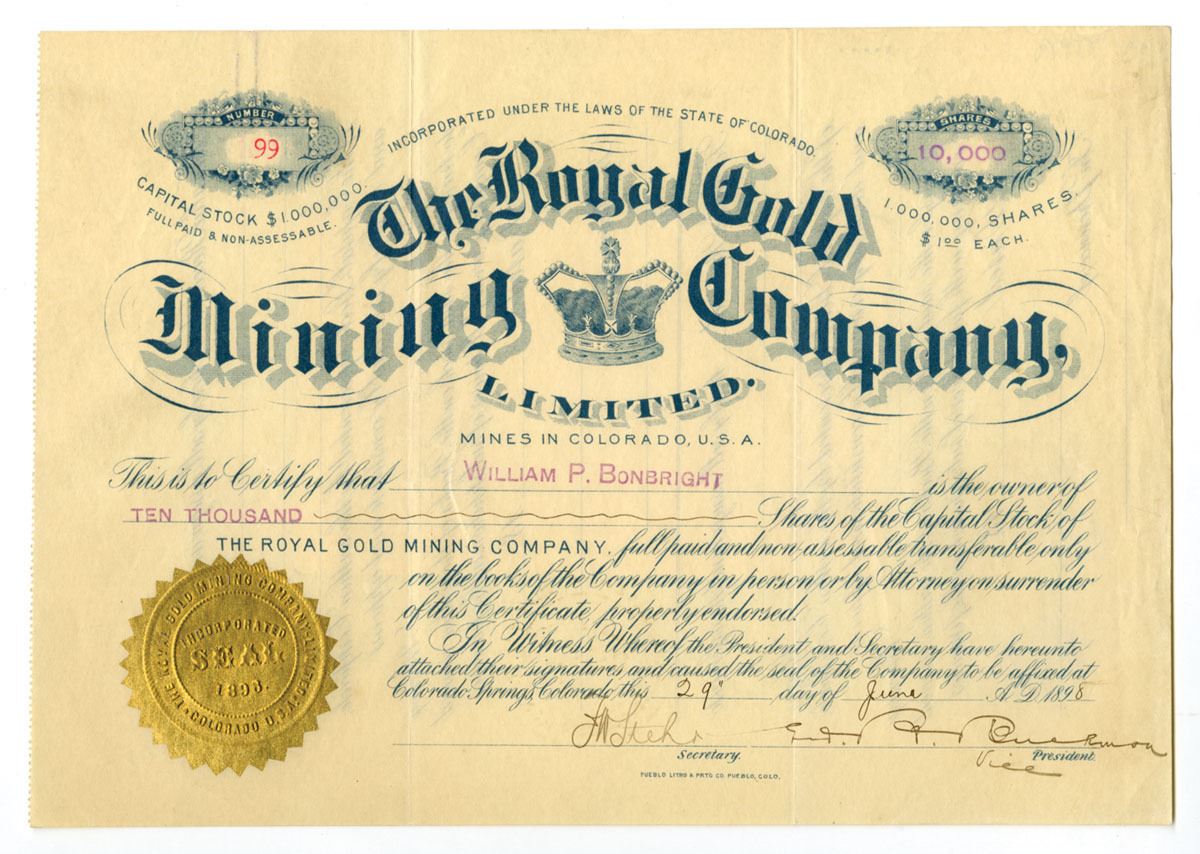 INCORPORATED UNDER THE LAWS OF THE STATE OF COLORADO.
NUMBER
99
CAPITAL STOCK $1.000,000.
FULL PAID & NON-ASSESSABLE.
SHARES
10,000
1.000,000, SHARES.
$1.00 EACH.
The Royal Gold
Mining Company,
LIMITED.
MINES IN COLORADO, U.S.A.
This is to Certify that WILLIAM P. BONBRIGHT is the owner of
TEN THOUSAND Shares of the Capital Stock of
THE ROYAL GOLD MINING COMPANY, full paid and non-assessable transferable only
on the books of the Company in person or by Attorney on surrender
of this Certificate properly endorsed.
In Witness Whereof the President and Secretary have hereunto
attached their signatures and caused the seal of the Company to be affixed at
Colorado Springs, Colorado this 29" day of June A.D. 1898
THE ROYAL GOLD MINING COMPANY LIMITED.
INCORPORATED
SEAL
1893.
COLORADO U.S.A.
Secretary.
Vice President.
PUEBLO LITHO & PRTG CO. PUEBLO, COLO.